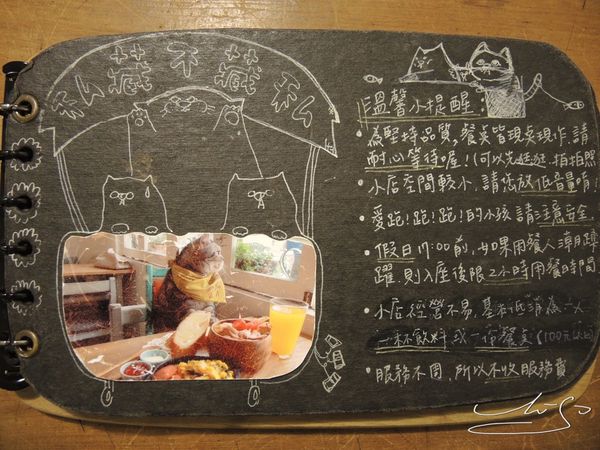 私藏不藏私
溫馨小提醒:
•為堅持品質,餐點皆現點現作,請
耐心等待喔!(可以先逛逛,拍拍照
•小店空間較小,請您放低音量唷!
•愛跑!跑!跑!的小孩請注意安全.
•假日17:00前,如果用餐人潮踴
躍,則入座後限2小時用餐時間
•小店經營不易,基本低消為一人
一杯飲料或一份餐點(100元以
•服務不周,所以不收服務費